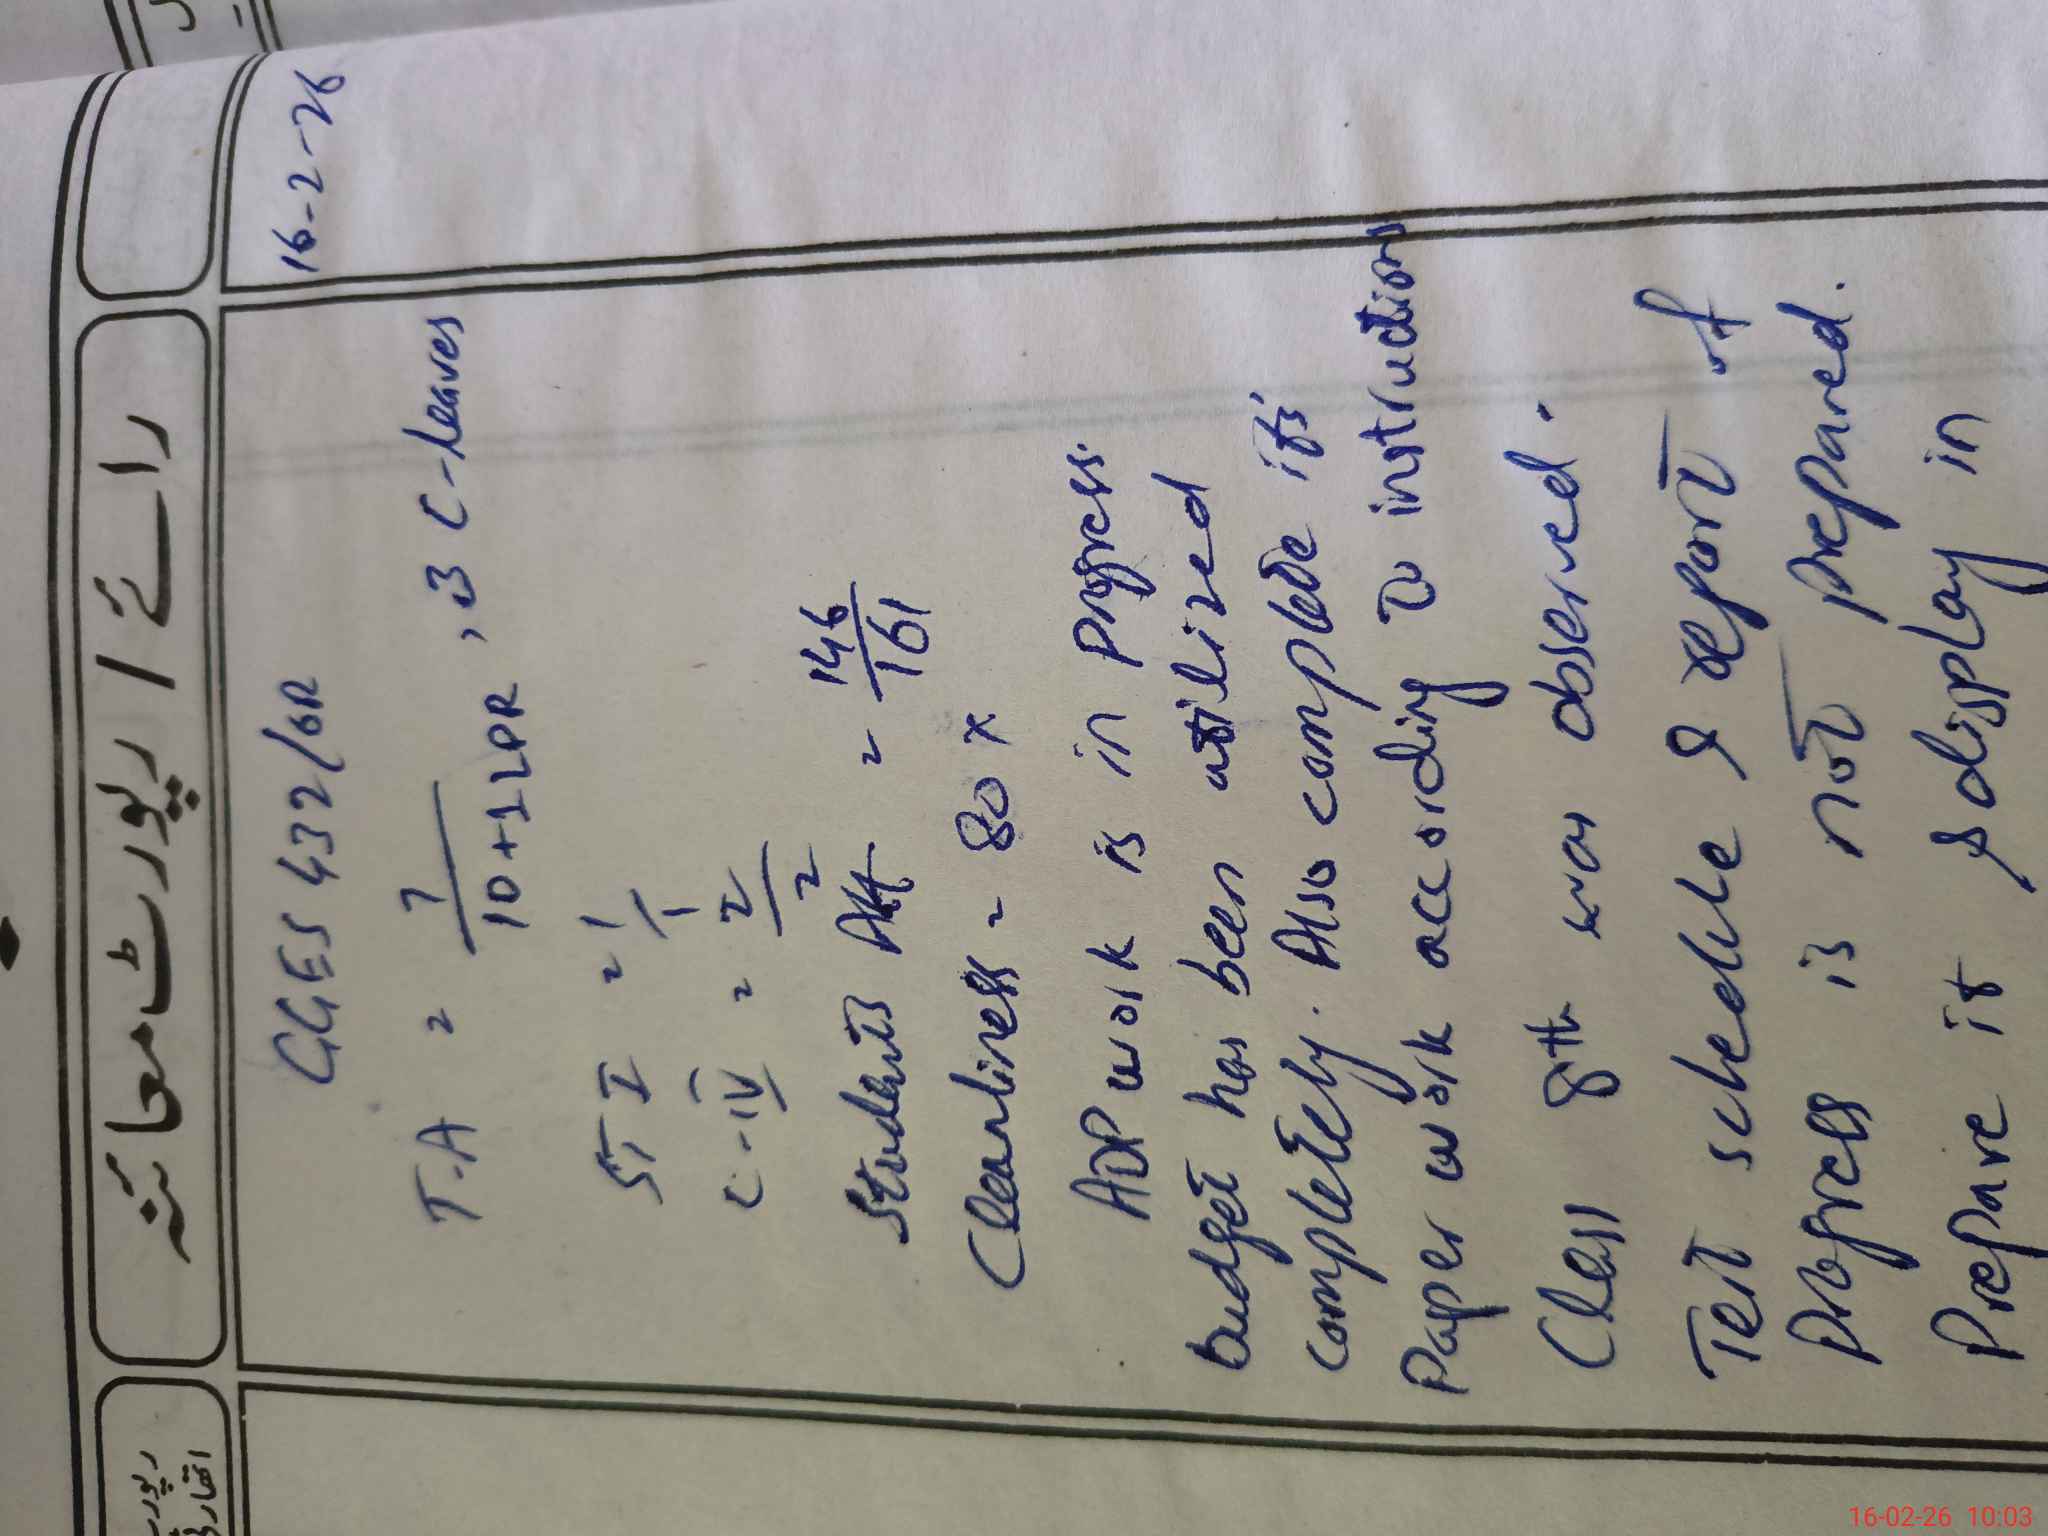 رائے / رپورٹ معائنہ
16-2-26
GGES 432/6R
T.A = 7/10+1LPR , 3 C-leaves
ST I = 1/1
C-IV = 2/2
Students Att = 146/161
Cleanliness = 80%
ADP work is in Progress.
budget has been utilized
completely. Also complete its'
Paper work according to instructions
Class 8th was observed.
Test schedule & report of
Progress is not prepared.
Prepare it & display in
16-02-26 10:03